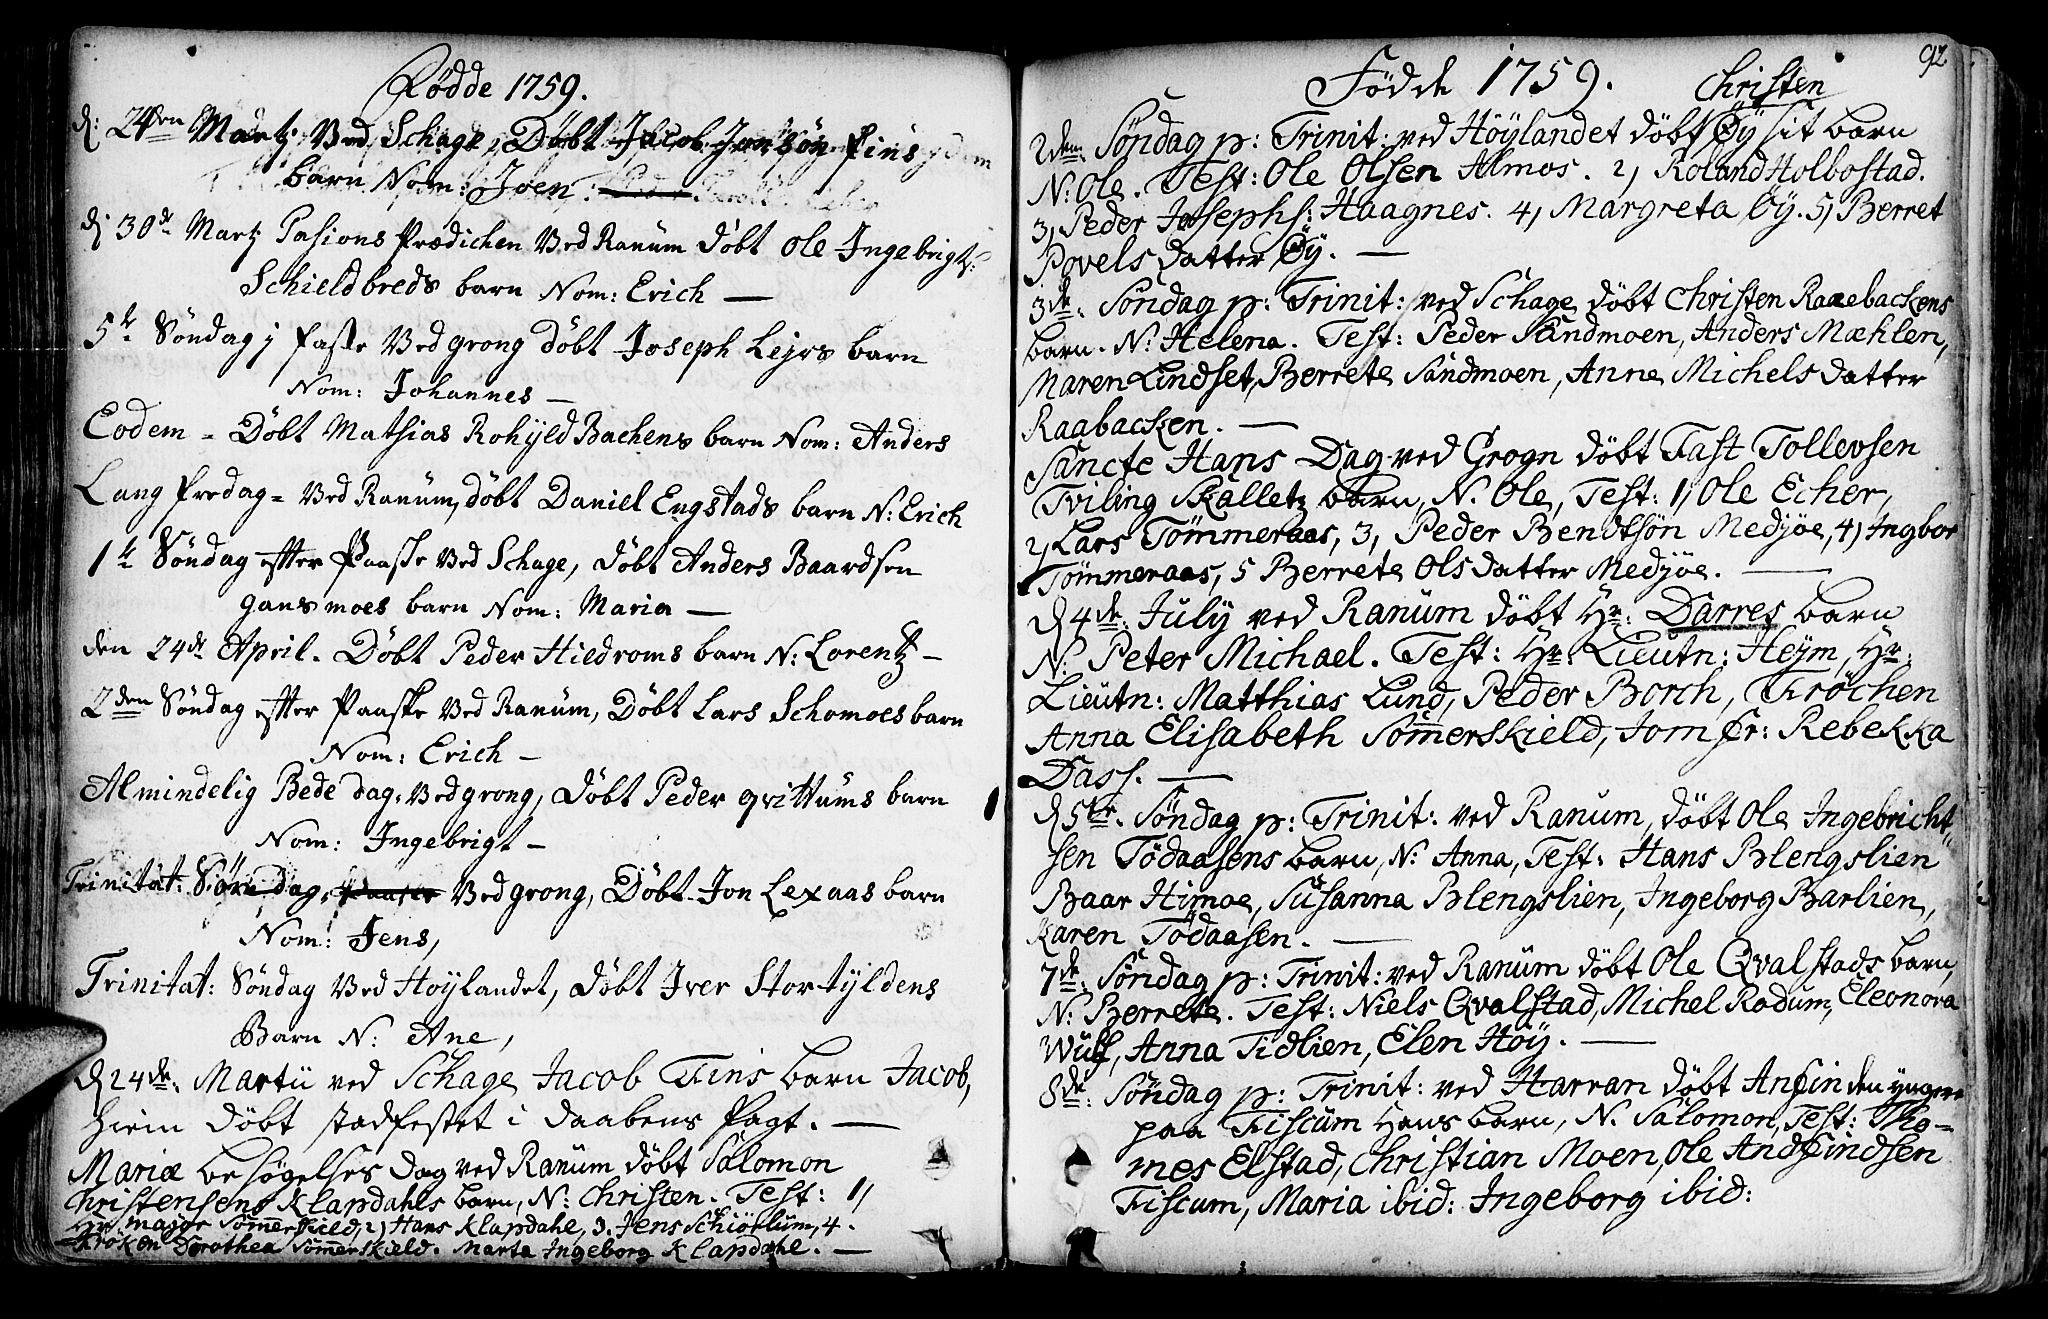 Fødde 1759.
d: 24den Martz Ved Schage, Døbt Jacob Jonsøn Fins
barn Nom: Joen.
d: 30de Martz Pasions Prædichen Ved Ranum døbt Ole Ingebrigtz:
Schieldbreds barn Nom: Erich —
5te Søndag j Faste Ved grong døbt Joseph Lejrs barn
Nom: Johannes —
Eodem - Døbt Mathias Rohyldbachens barn Nom: Anders
Lang fredag - Ved Ranum, døbt Daniel Engstads barn N: Erich
1te Søndag efter Paaske Ved Schage, døbt Anders Baardsen
Gansmoes barn Nom: Maria —
den 24de April. Døbt Peder Hiedroms barn N: Lorentz —
2den Søndag efter Paaske Ved Ranum, Døbt Lars Schomoes barn
Nom: Erich —
Almindelig Bede dag, Ved grong, døbt Peder qvittums barn
Nom: Ingebrigt —
Trinitat: Søndag, Ved grong, Døbt Jon Lexaas barn
Nom: Jens,
Trinitat: Søndag Ved Høylandet, døbt Iver Stortyldens
Barn N: Ane,
d 24de: Martii ved Schage Jacob Fins barn Jacob,
hiem døbt stadfestet i daabens Pagt. —
Mariæ besøgelses dag ved Ranum døbt Salomon
Christensens Klapdahls barn, N: Christen. Test: 1,
Hr: major Sommerskield, 2, Hans Klapdahl, 3. Jens Schiørlum, 4.
Frøken Dorothea Sommerskield. Marta Ingeborg Klapdahl. —
92
Födde 1759.
Christen
2dem: Söndag p: Trinit: ved Höylandet döbt Öy sit barn
N: Ole. Test: Ole Olsen Almos. 2, Roland Holbostad.
3, Peder Josephs: Haagnes. 4, Margreta Öy. 5, Berret
Povels datter Öy. —
3de: Söndag p: Trinit: ved Schage döbt Christen Raaebackens
barn. N: Helena. Test: Peder Sandmoen, Anders Mæhlen,
Maren Lindset, Berrete Sandmoen, Anne Michels datter
Raabacken. —
Sancte Hans Dag ved Grogn döbt Fast Tollevsen
Tviling Skalletz barn, N: Ole, Test: 1, Ole Echer,
2, Lars Tömmeraas, 3, Peder Bendtsön Medjöe, 4, Ingbor
Tömmeraas, 5 Berrete Olsdatter Medjöe. —
d 4de: July ved Ranum döbt Hr: Darres barn
N: Peter Michael. Test: Hr: Lieutn: Heym, Hr:
Lieutn: Matthias Lund, Peder Borch, Fröchen
Anna Elisabeth Sommerskield, Jomfr: Rebekka
Dass. —
d 5te: Söndag p: Trinit: ved Ranum, döbt Ole Ingebricht
sen Tödaasens barn, N: Anna, Test: Hans Blengslien
Baar Himoe, Susanna Blengslien, Ingeborg Barlien,
Karen Tödaasen. —
7de: Söndag p: Trinit: ved Ranum döbt Ole Qvalstads barn,
N: Berrete. Test: Niels Qvalstad, Michel Rodum, Eleonora
Wulf, Anna Tidlien, Elen Höy. —
8de: Söndag p: Trinit: ved Harran döbt Anfin den yngere
paa Fiscum Hans barn, N. Salomon, Test: Tho-
mes Elstad, Christian Moen, Ole Andfindsen
Fiscum, Maria ibid: Ingeborg ibid: